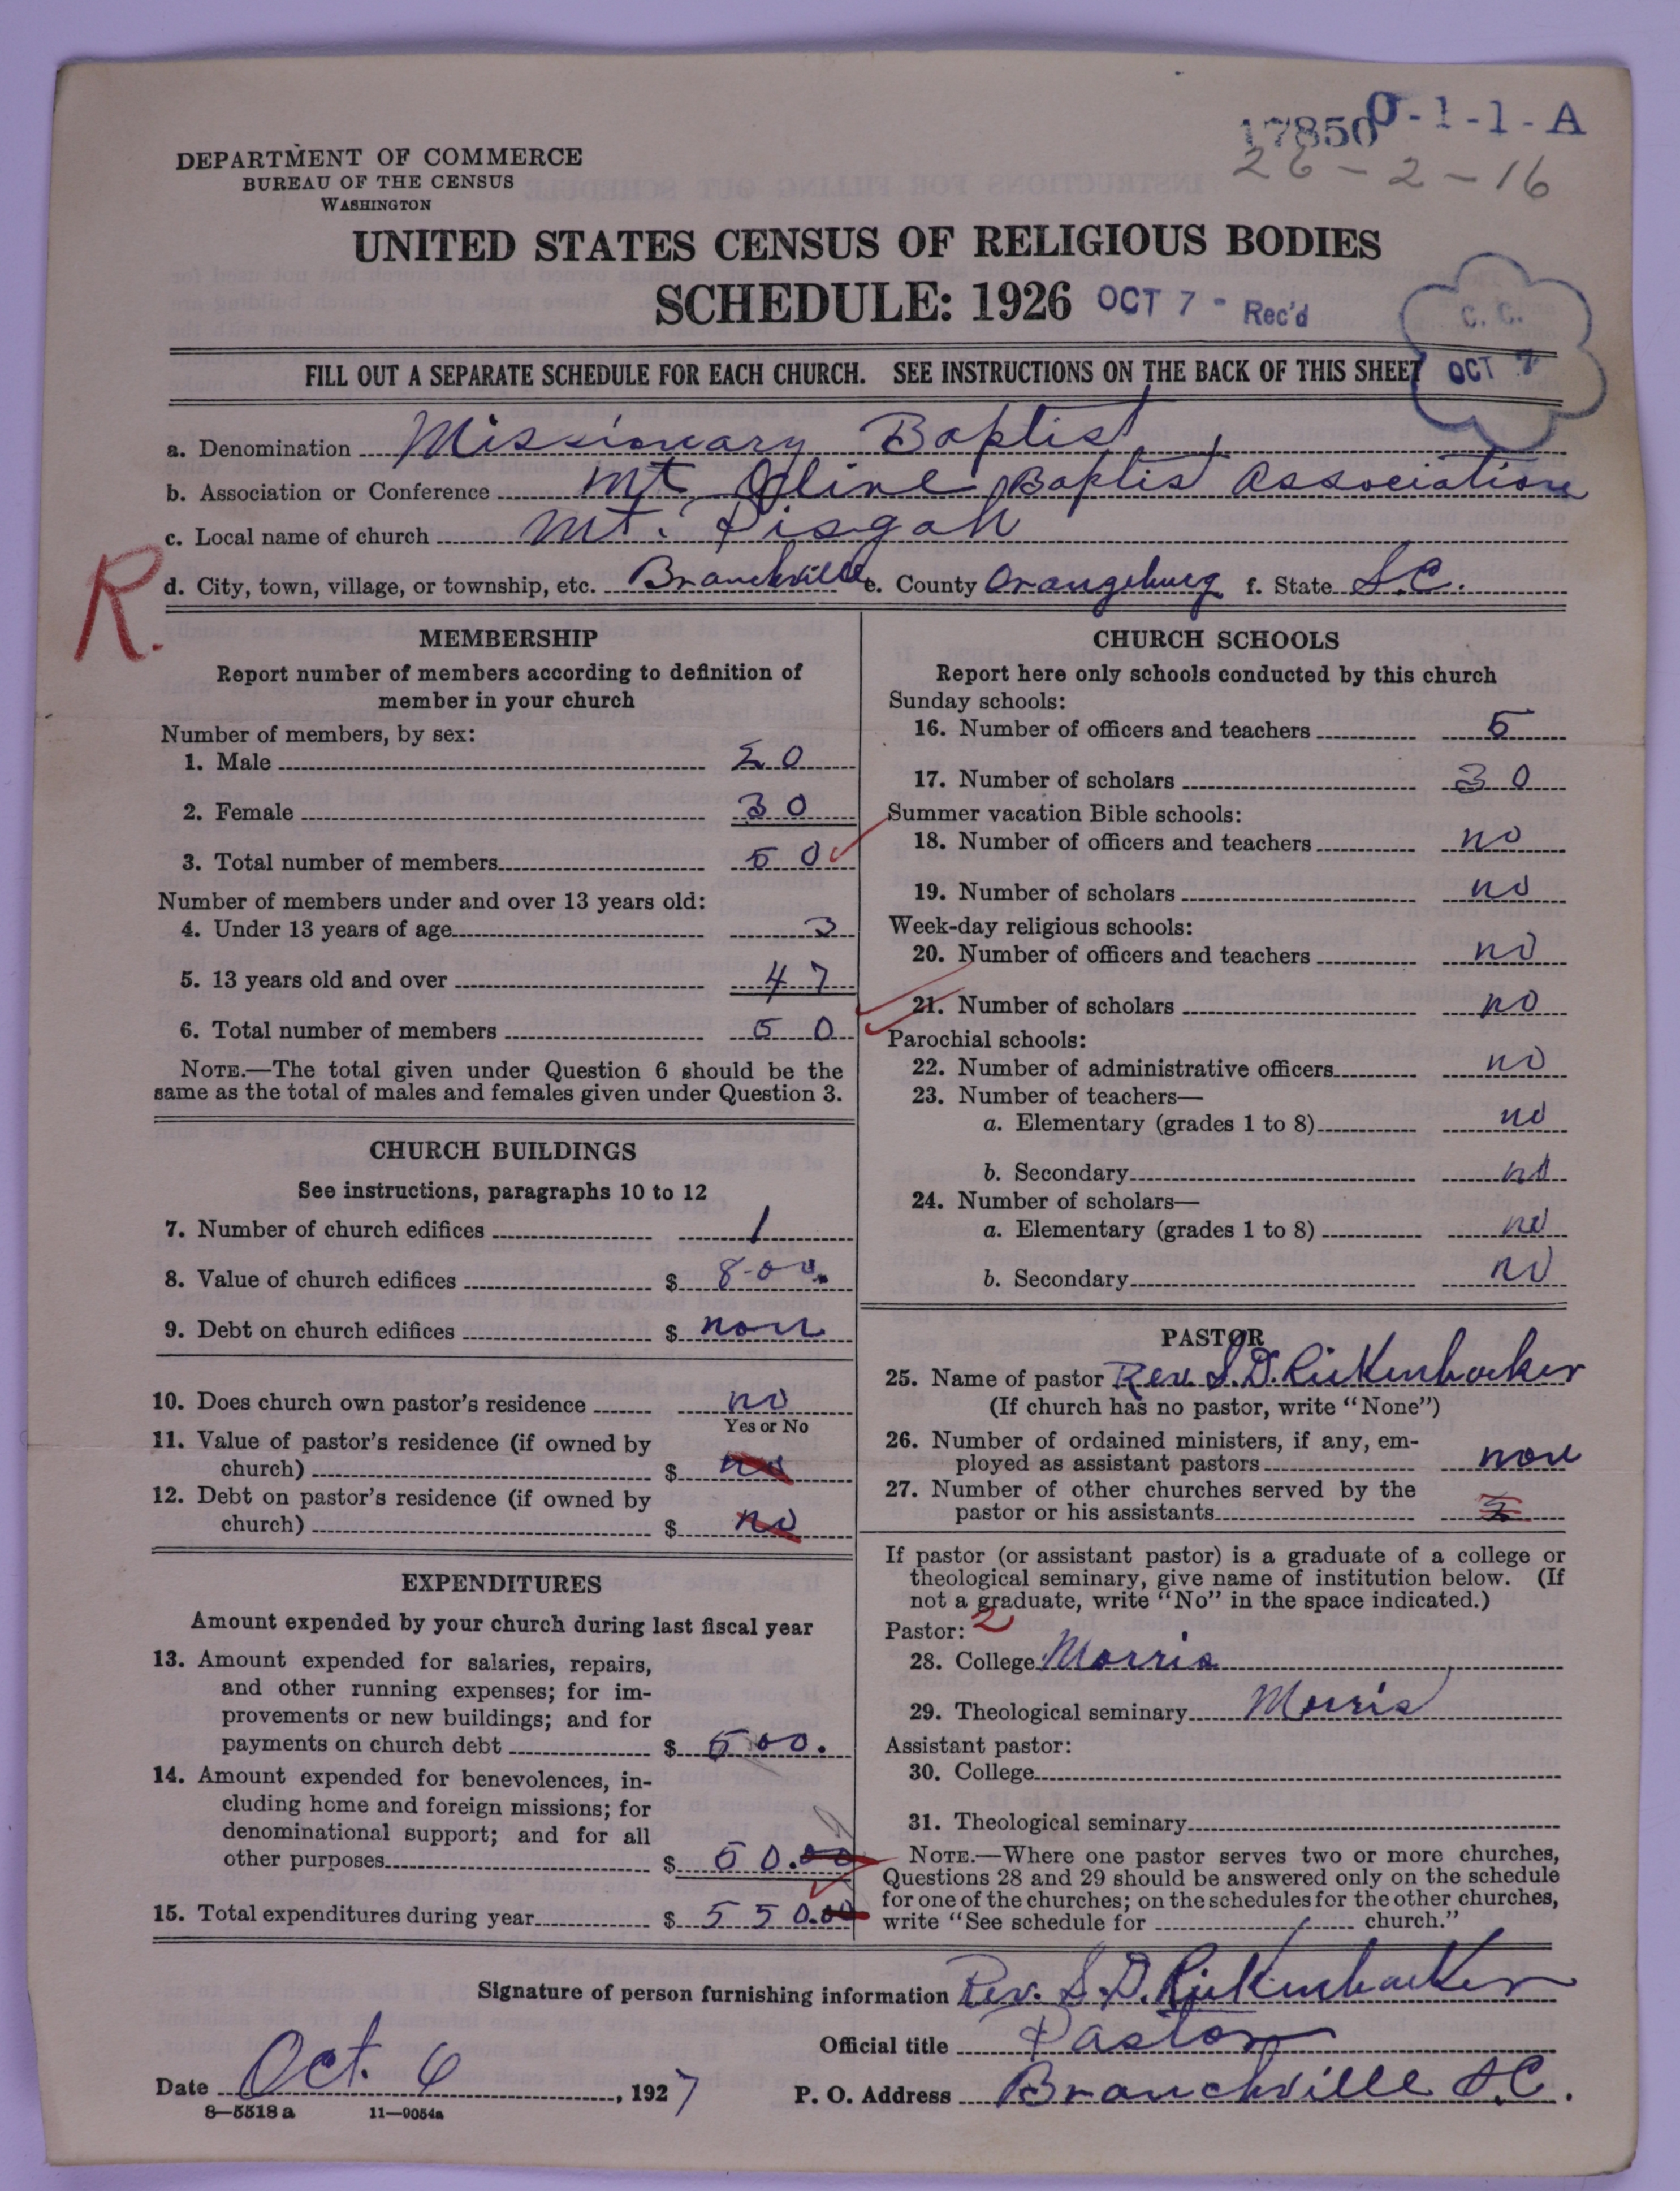 17850 0-1-1-A
26-2-16
DEPARTMENT OF COMMERCE
BUREAU OF THE CENSUS
WASHINGTON
UNITED STATES CENSUS OF RELIGIOUS BODIES
SCHEDULE: 1926 OCT 7 - Rec'd
C. C.
OCT 7
FILL OUT A SEPARATE SCHEDULE FOR EACH CHURCH. SEE INSTRUCTIONS ON THE BACK OF THIS SHEET
a. Denomination Missionary Baptist
b. Association or Conference Mt Olive Baptist Association
c. Local name of church Mt. Pisgah
R.
d. City, town, village, or township, etc. Branchville e. County Orangeburg f. State S.C.
MEMBERSHIP
Report number of members according to definition of
member in your church
Number of members, by sex:
1. Male 20
2. Female 30
3. Total number of members 50
Number of members under and over 13 years old:
4. Under 13 years of age 3
5. 13 years old and over 47
6. Total number of members 50
NOTE.—The total given under Question 6 should be the
same as the total of males and females given under Question 3.
CHURCH BUILDINGS
See instructions, paragraphs 10 to 12
7. Number of church edifices 1
8. Value of church edifices $ 800.
9. Debt on church edifices $ non
10. Does church own pastor's residence no
Yes or No
11. Value of pastor's residence (if owned by
church) $ no
12. Debt on pastor's residence (if owned by
church) $ no
EXPENDITURES
Amount expended by your church during last fiscal year
13. Amount expended for salaries, repairs,
and other running expenses; for im-
provements or new buildings; and for
payments on church debt $ 500.
14. Amount expended for benevolences, in-
cluding home and foreign missions; for
denominational support; and for all
other purposes $ 50.00
15. Total expenditures during year $ 550.00
CHURCH SCHOOLS
Report here only schools conducted by this church
Sunday schools:
16. Number of officers and teachers 5
17. Number of scholars 30
Summer vacation Bible schools:
18. Number of officers and teachers no
19. Number of scholars no
Week-day religious schools:
20. Number of officers and teachers no
21. Number of scholars no
Parochial schools:
22. Number of administrative officers no
23. Number of teachers—
a. Elementary (grades 1 to 8) no
b. Secondary no
24. Number of scholars—
a. Elementary (grades 1 to 8) no
b. Secondary no
PASTOR
25. Name of pastor Rev. S.D. Rickenbacker
(If church has no pastor, write "None")
26. Number of ordained ministers, if any, em-
ployed as assistant pastors non
27. Number of other churches served by the
pastor or his assistants
If pastor (or assistant pastor) is a graduate of a college or
theological seminary, give name of institution below. (If
not a graduate, write "No" in the space indicated.)
Pastor: 2
28. College Morris
29. Theological seminary Morris
Assistant pastor:
30. College
31. Theological seminary
NOTE.—Where one pastor serves two or more churches,
Questions 28 and 29 should be answered only on the schedule
for one of the churches; on the schedules for the other churches,
write "See schedule for church."
Signature of person furnishing information Rev. S.D. Rickenbacker
Official title Pastor
Date Oct. 6, 1927 P. O. Address Branchville S.C.
8—5518 a 11—9054a